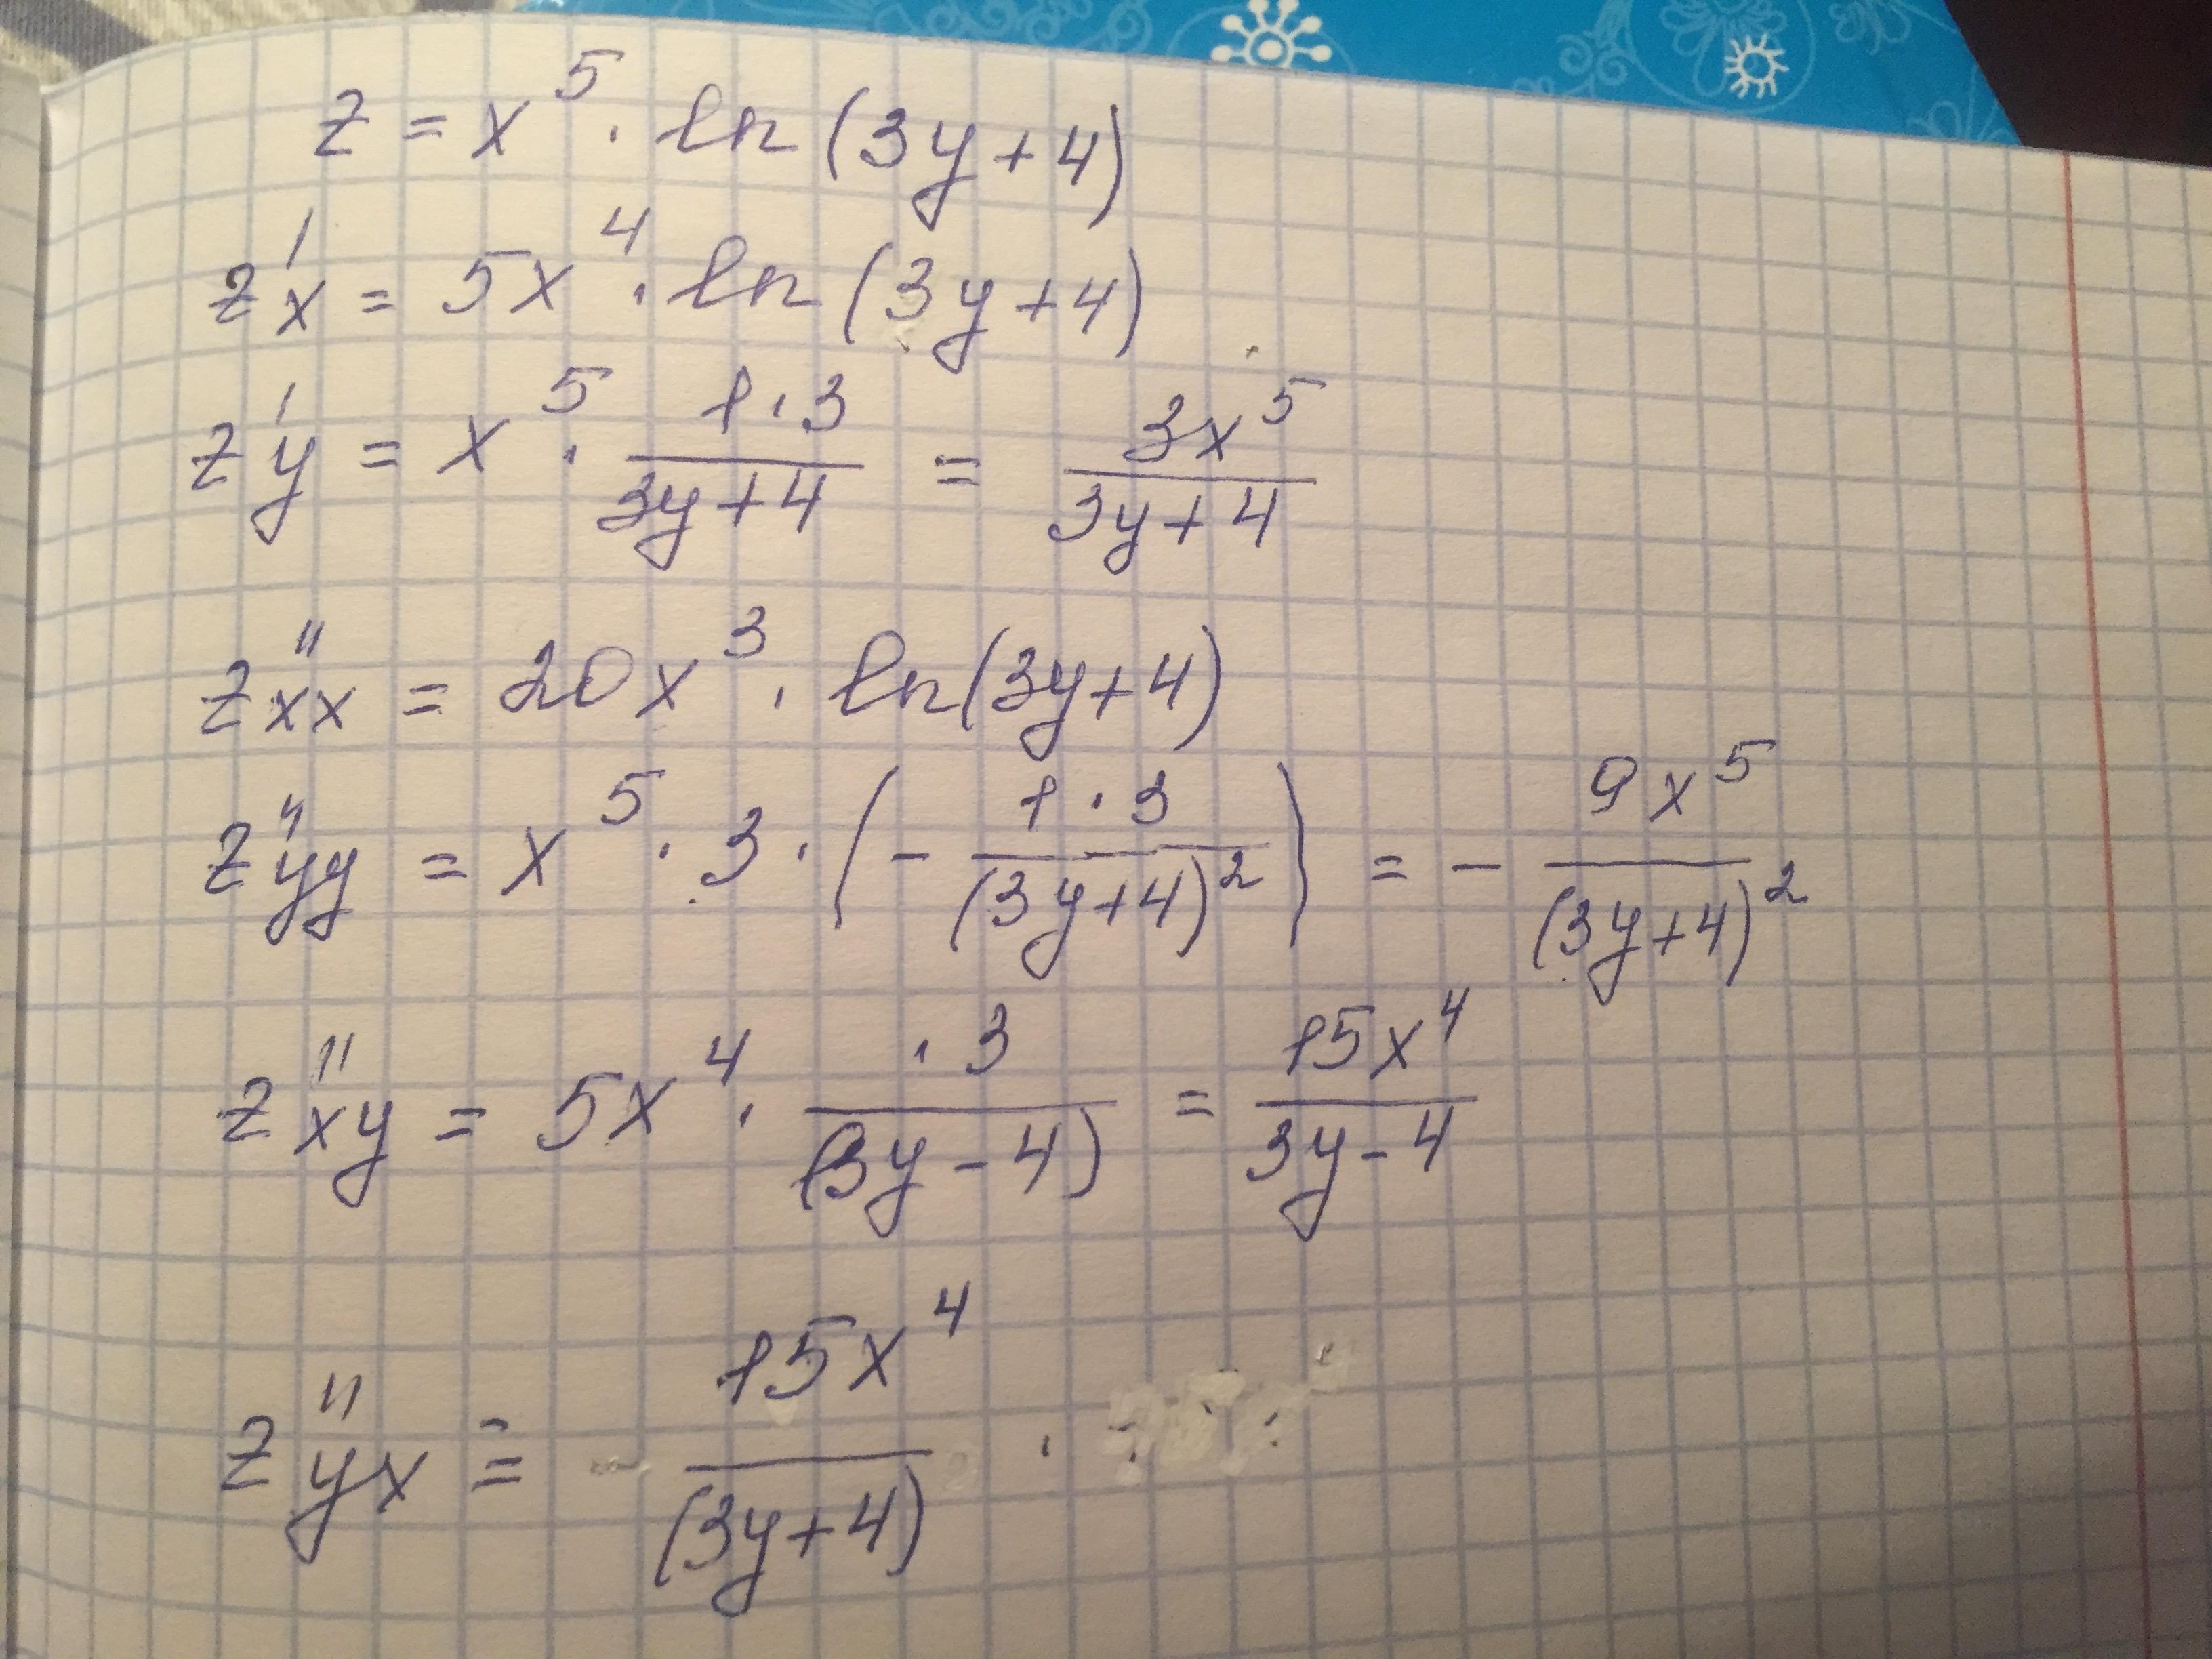 z = x⁵ · ln(3y+4)
z'x = 5x⁴ · ln(3y+4)
z'y = x⁵ · (1·3)/(3y+4) = 3x⁵/(3y+4)
z''xx = 20x³ · ln(3y+4)
z''yy = x⁵ · 3 · (− (1·3)/(3y+4)²) = − 9x⁵/(3y+4)²
z''xy = 5x⁴ · (·3)/(3y−4) = 15x⁴/(3y−4)
z''yx = 15x⁴/(3y+4) ·